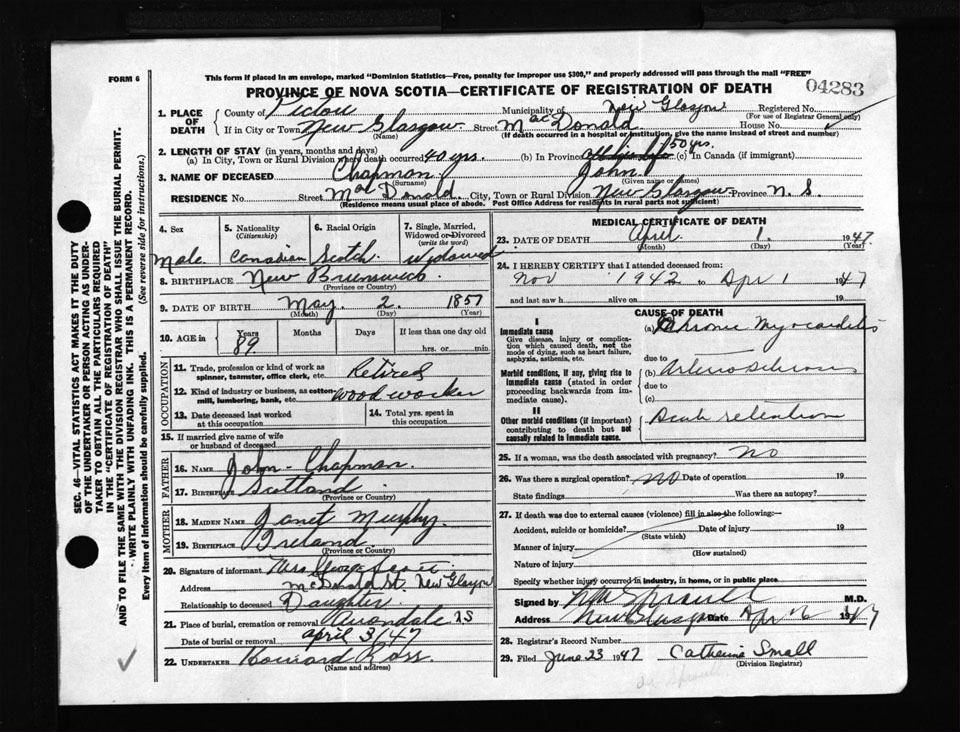 FORM 6
This form if placed in an envelope, marked "Dominion Statistics—Free, penalty for improper use $300," and properly addressed will pass through the mail "FREE"
PROVINCE OF NOVA SCOTIA—CERTIFICATE OF REGISTRATION OF DEATH
04283
1. PLACE OF DEATH
County of Pictou Municipality of New Glasgow Registered No.
(For use of Registrar General only)
If in City or Town New Glasgow Street MacDonald House No.
(Name) (If death occurred in a hospital or institution, give name instead of street and number)
2. LENGTH OF STAY (in years, months and days)
(a) In City, Town or Rural Division where death occurred 40 yrs. (b) In Province 50 yrs. (c) In Canada (if immigrant)
3. NAME OF DECEASED Chapman John
(Surname) (Given name or names)
RESIDENCE No. Street MacDonald City, Town or Rural Division New Glasgow Province N. S.
(Residence means usual place of abode. Post Office Address for residents in rural parts not sufficient)
4. Sex
Male
5. Nationality
(Citizenship)
Canadian
6. Racial Origin
Scotch
7. Single, Married, Widowed or Divorced
(write the word)
Widowed
8. BIRTHPLACE New Brunswick
(Province or Country)
9. DATE OF BIRTH May 2 1857
(Month) (Day) (Year)
10. AGE in Years Months Days If less than one day old
89 hrs. or min.
OCCUPATION
11. Trade, profession or kind of work as
spinner, teamster, office clerk, etc. Retired
12. Kind of industry or business, as cotton-
mill, lumbering, bank, etc. Wood worker
13. Date deceased last worked
at this occupation
14. Total yrs. spent in
this occupation
15. If married give name of wife
or husband of deceased
FATHER
16. NAME John Chapman
17. BIRTHPLACE Scotland
(Province or Country)
MOTHER
18. MAIDEN NAME Janet Murphy
19. BIRTHPLACE Ireland
(Province or Country)
20. Signature of informant Mrs. George
Address McDonald St. New Glasgow
Relationship to deceased Daughter
21. Place of burial, cremation or removal NS
Date of burial or removal April 3/47
22. UNDERTAKER Howard Ross
(Name and address)
MEDICAL CERTIFICATE OF DEATH
23. DATE OF DEATH April 1 1947
(Month) (Day) (Year)
24. I HEREBY CERTIFY that I attended deceased from:
Nov 1942 to Apr 1 1947
and last saw h alive on 19
CAUSE OF DEATH
I
Immediate cause
Give disease, injury or complica-
tion which caused death, not the
mode of dying, such as heart failure,
asphyxia, asthenia, etc.
(a) Chronic Myocarditis
due to
Morbid conditions, if any, giving rise to
immediate cause (stated in order
proceeding backwards from im-
mediate cause).
(b) Arteriosclerosis
due to
(c)
II
Other morbid conditions (if important)
contributing to death but not
causally related to immediate cause.
Acute retention
25. If a woman, was the death associated with pregnancy? No
26. Was there a surgical operation? No Date of operation 19
State findings Was there an autopsy?
27. If death was due to external causes (violence) fill in also the following:—
Accident, suicide or homicide? Date of injury 19
(State which)
Manner of injury
(How sustained)
Nature of injury
Specify whether injury occurred in industry, in home, or in public place
Signed by M.D.
Address New Glasgow Date Apr 1947
28. Registrar's Record Number
29. Filed June 23 1947 Catherine Small
(Division Registrar)
SEC. 46—VITAL STATISTICS ACT MAKES IT THE DUTY
OF THE UNDERTAKER OR PERSON ACTING AS UNDER-
TAKER TO OBTAIN ALL THE PARTICULARS REQUIRED
IN THE "CERTIFICATE OF REGISTRATION OF DEATH"
AND TO FILE THE SAME WITH THE DIVISION REGISTRAR WHO SHALL ISSUE THE BURIAL PERMIT.
WRITE PLAINLY WITH UNFADING INK. THIS IS A PERMANENT RECORD.
Every item of information should be carefully supplied. (See reverse side for instructions.)